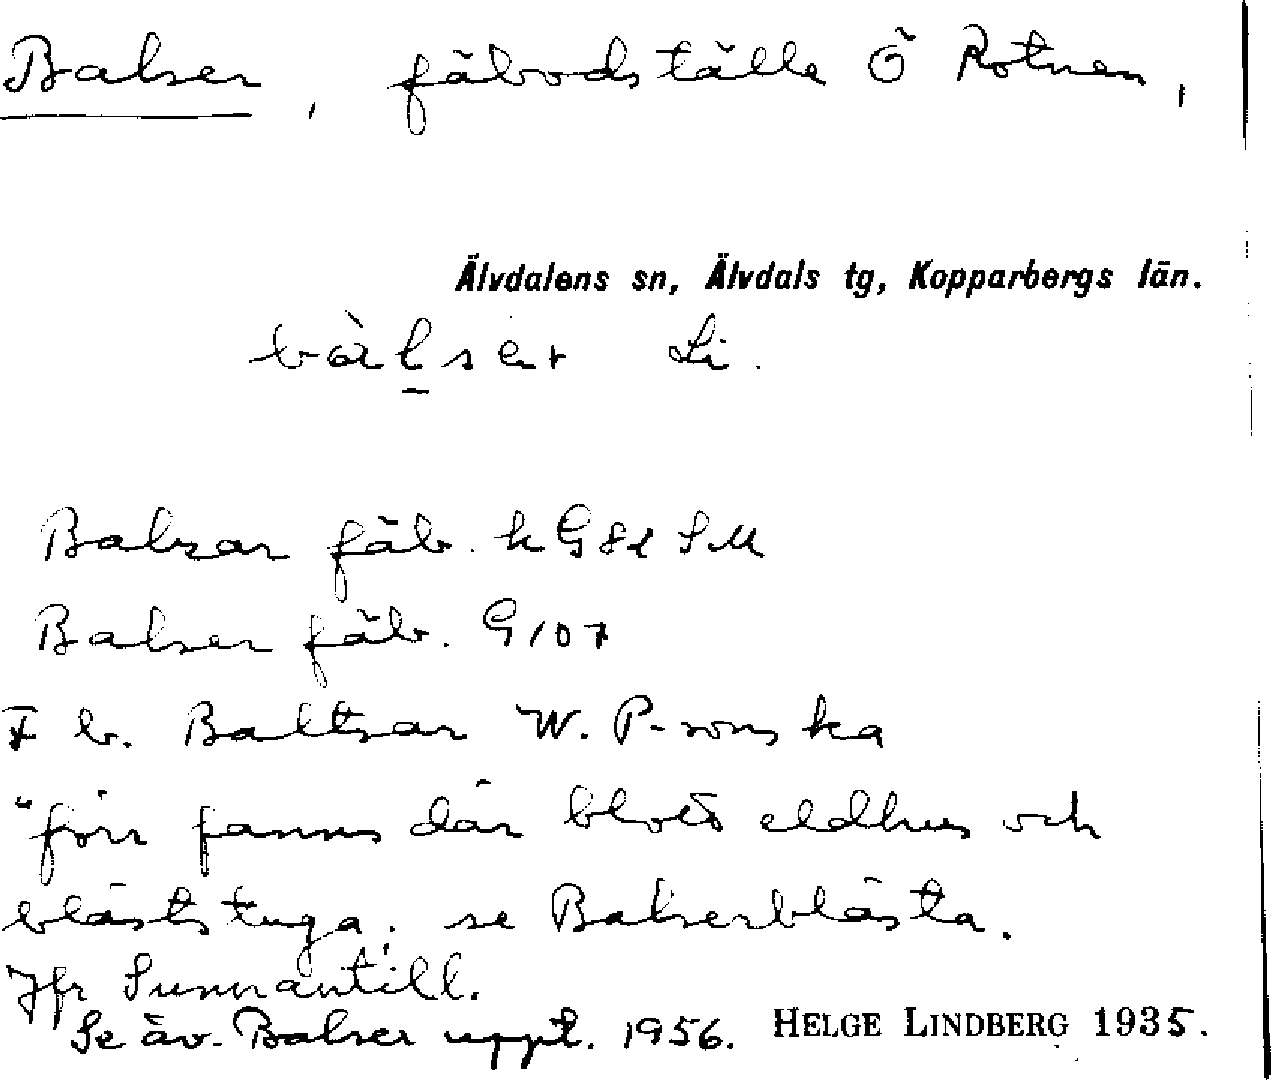 Balser, fäbodställe Ö Rotnen,
Älvdalens sn, Älvdals tg, Kopparbergs län.
bàlser Li.
Balsar fäb. k G 82 SM
Balser fäb. G 107
F b. Baltsar W. P-sons ka
"förr fanns där blott eldhus och
blåststuga. se Balserblästa.
Jfr Sunnantill.
Se äv. Balser uppt. 1956. HELGE LINDBERG 1935.